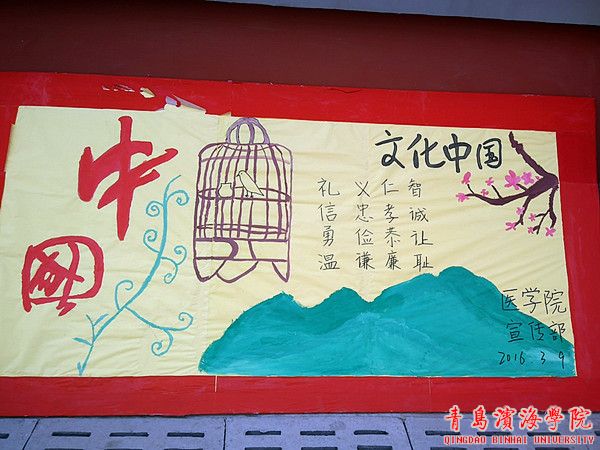 中
國
文化中国
礼 义 仁 智
信 忠 孝 诚
勇 俭 恭 让
温 谦 廉 耻
医学院
宣传部
2016.3.9
青島濱海學院
QINGDAO BINHAI UNIVERSITY